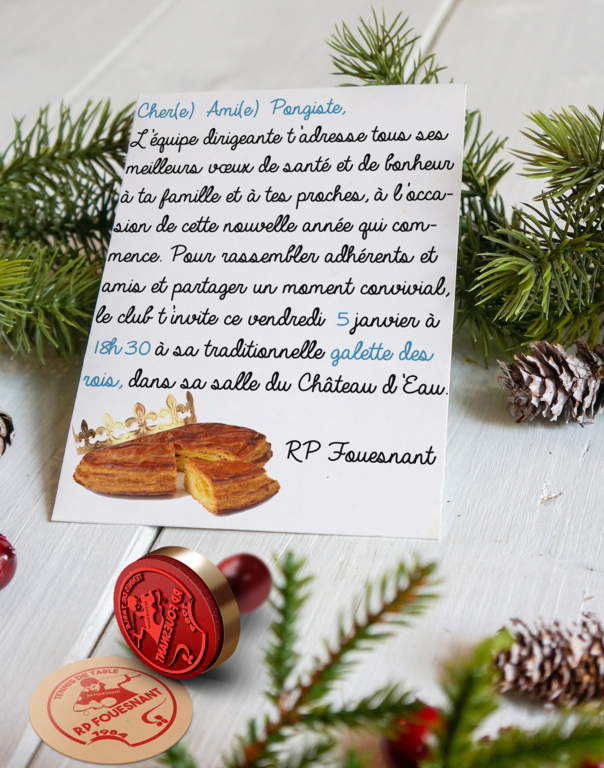 Cher(e) Ami(e) Pongiste,
L'équipe dirigeante t'adresse tous ses
meilleurs vœux de santé et de bonheur
à ta famille et à tes proches, à l'occa-
sion de cette nouvelle année qui com-
mence. Pour rassembler adhérents et
amis et partager un moment convivial,
le club t'invite ce vendredi 5 janvier à
18h30 à sa traditionnelle galette des
rois, dans sa salle du Château d'Eau.
RP Fouesnant
TENNIS DE TABLE
RP FOUESNANT
TENNIS DE TABLE
RP FOUESNANT
1984